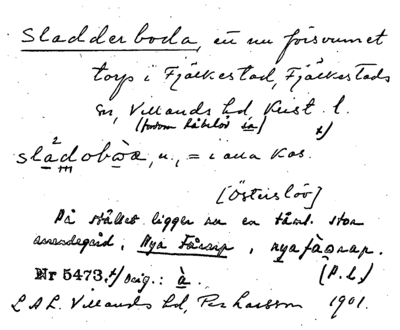 Sladderboda, en nu försvunnet
torp i Fjälkestad, Fjälkestads
sn, Villands hd, Krist. l.
slàdobòa, n., = i alla kas.
[Österslöv]
På stället ligger nu en täml. stor
arrendegård, Nya Fårarp, nyafàarap.
Nr 5473. x) Orig.: à. (P.L.)
L A L. Villands hd, Per Larsson 1901.